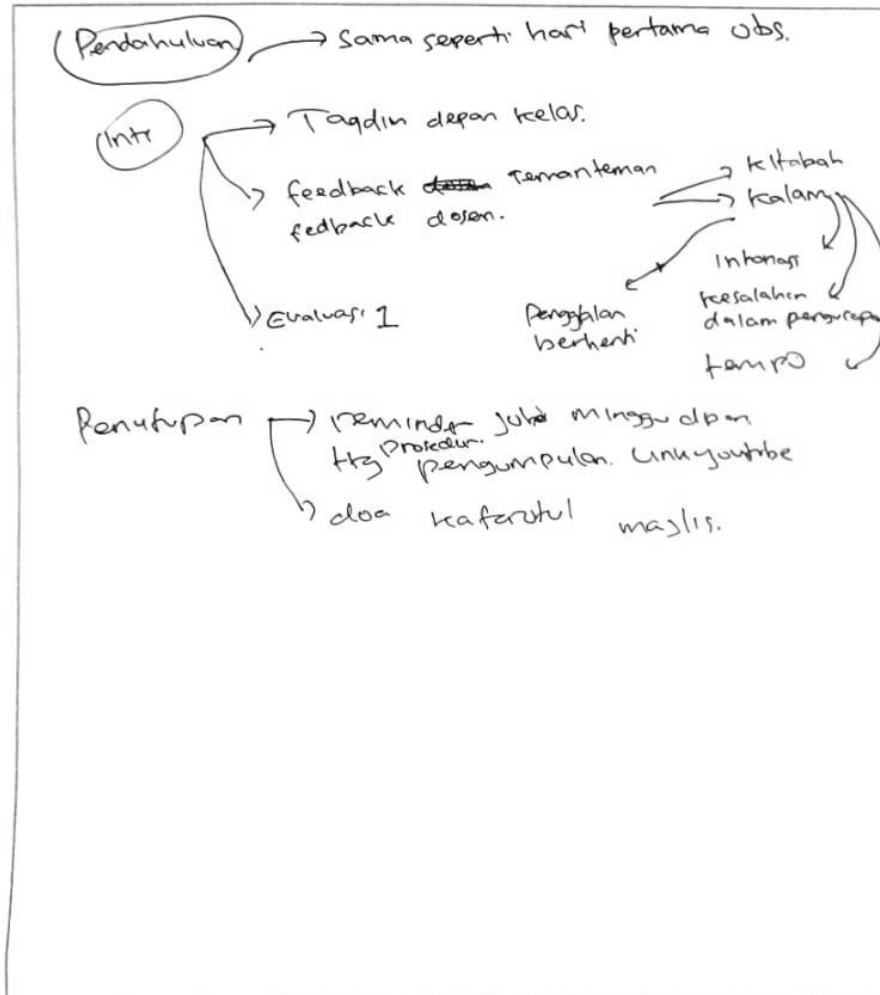 Pendahuluan → sama seperti hari pertama obs.
Inti
→ Taqdim depan kelas.
→ feedback teman teman
fedback dosen.
→ kitabah
→ kalam
Intonasi
kesalahan
dalam pengucapan
tempo
Penggalan
berhenti
→ Evaluasi 1
Penutupan → reminder minggu dpan
ttg prosedur pengumpulan. link youtube
→ doa kafarotul majlis.